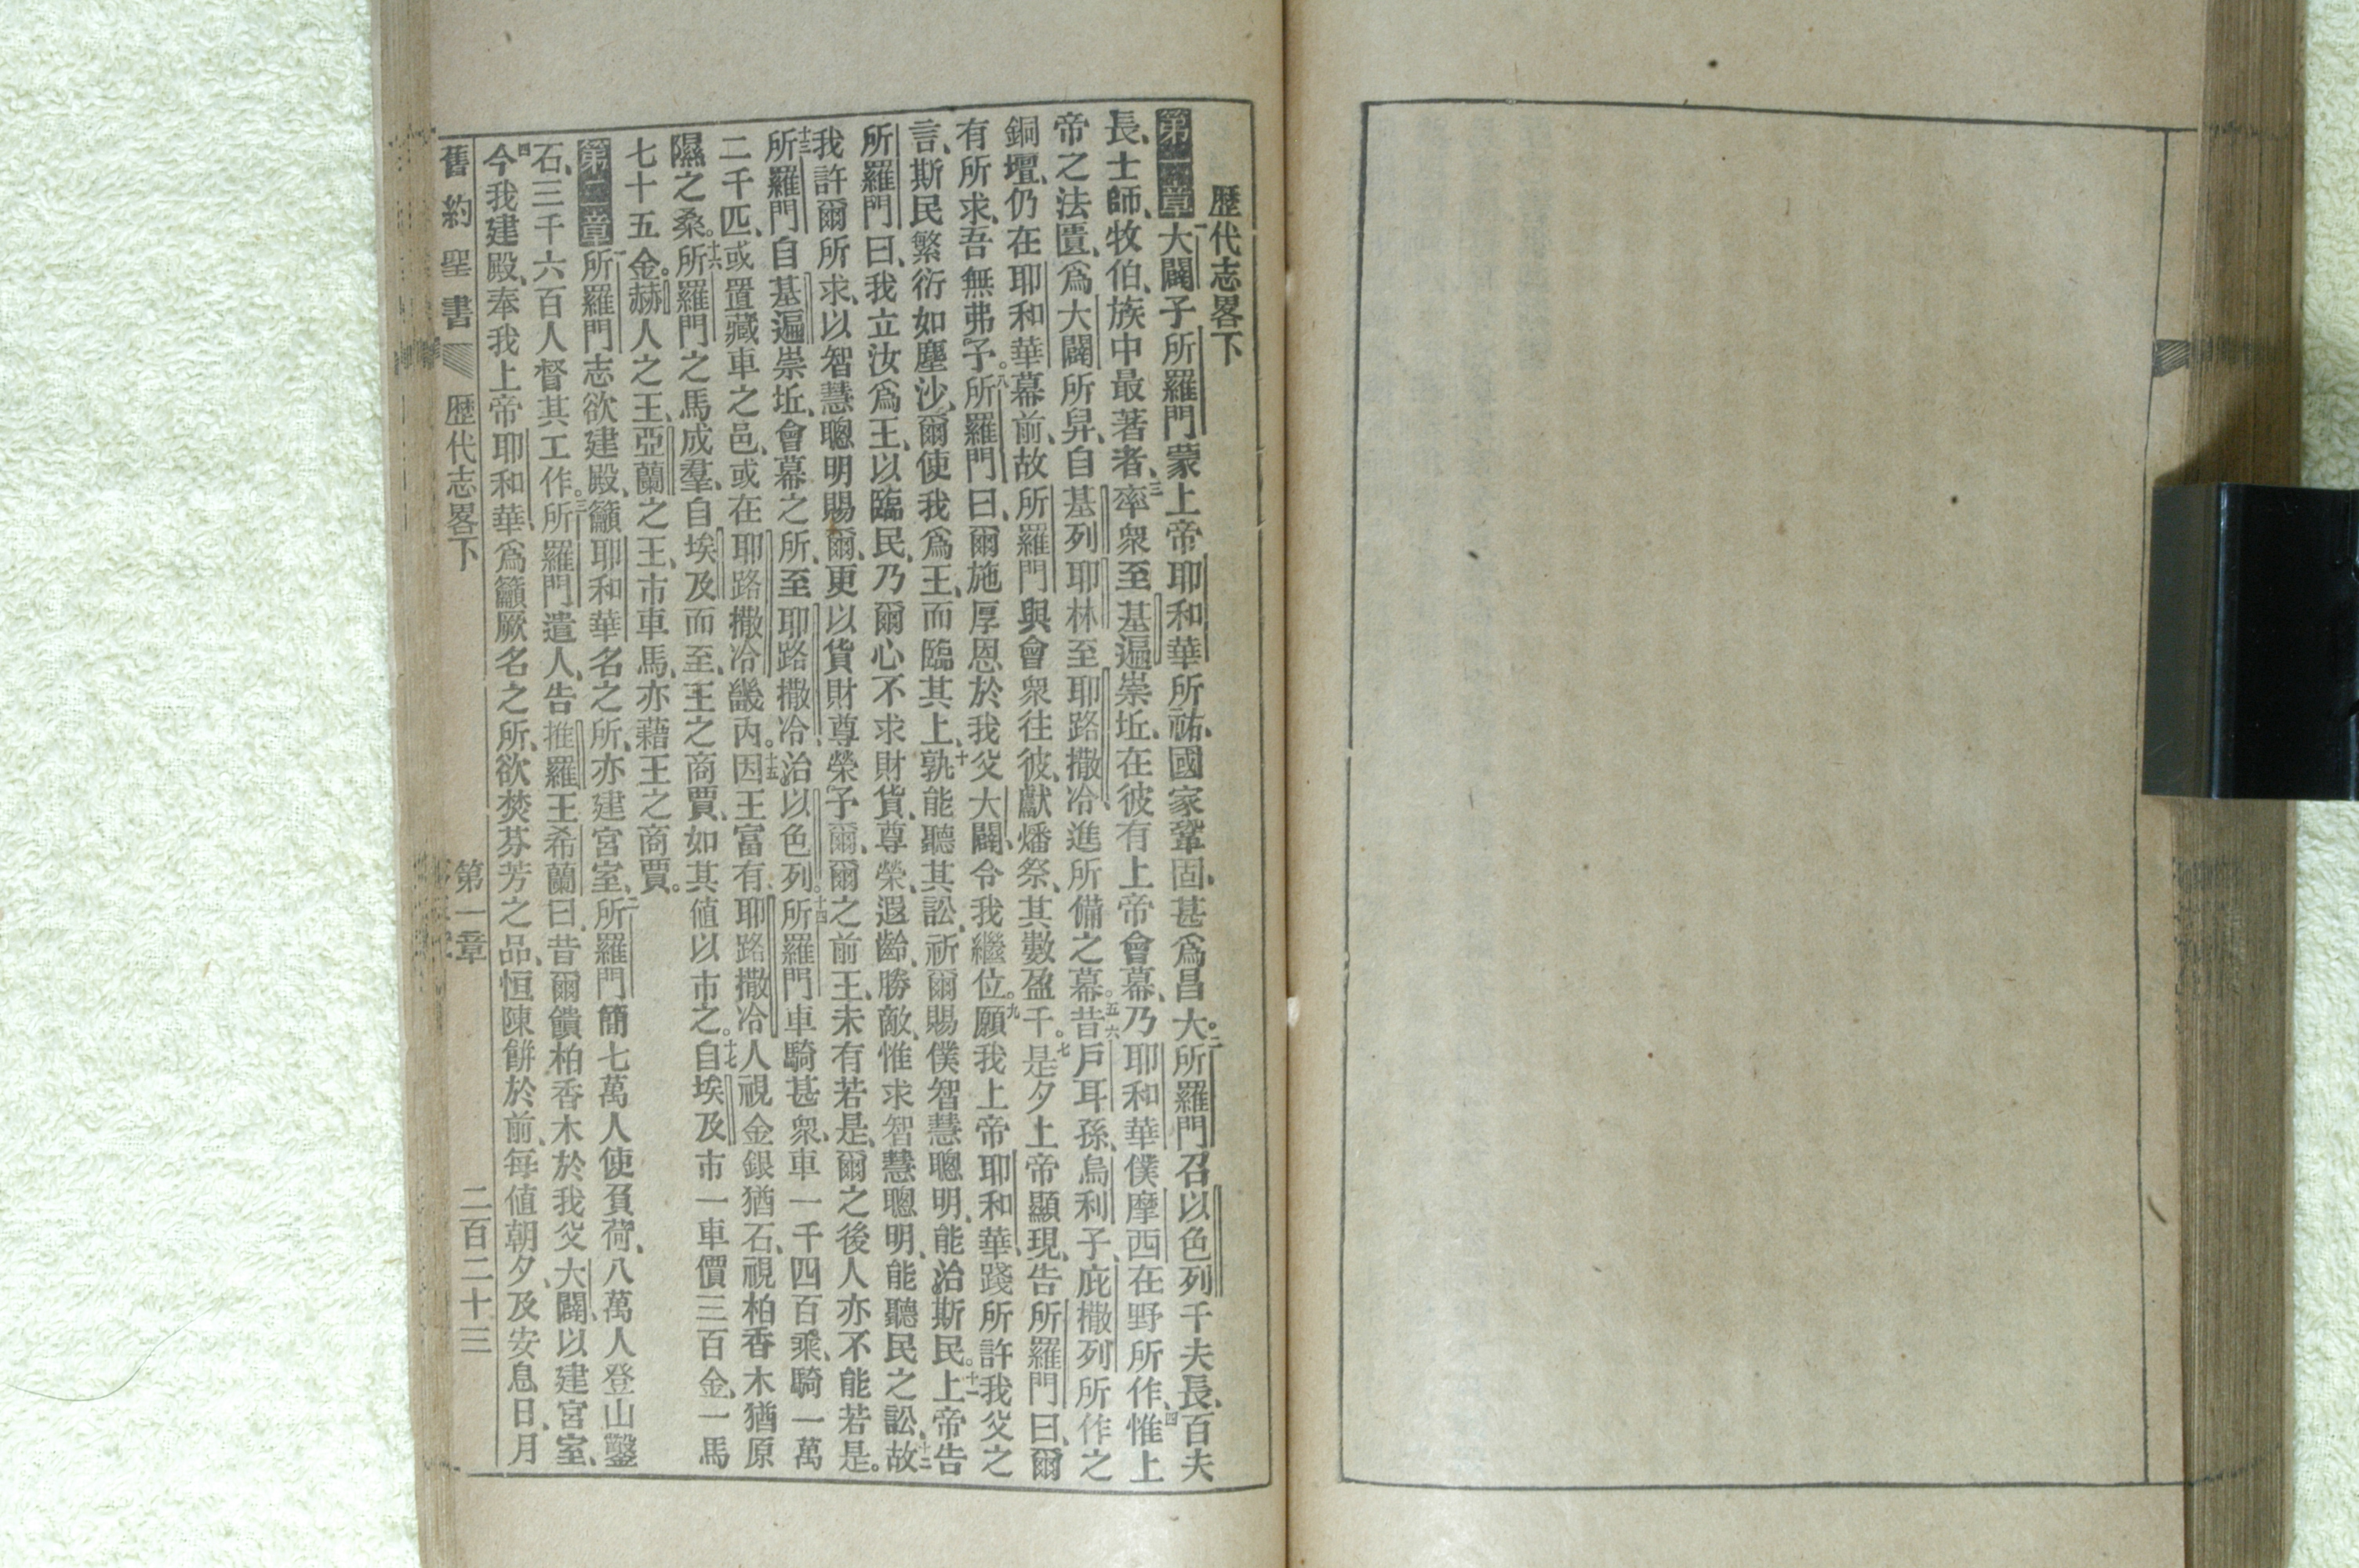 歷代志畧下
第一章一大闢子所羅門蒙上帝耶和華所祐、國家鞏固、甚爲昌大。二所羅門召以色列千夫長、百夫
長、士師、牧伯、族中最著者、三率衆至基遍崇坵、在彼有上帝會幕、乃耶和華僕摩西在野所作、四惟上
帝之法匱、爲大闢所舁、自基列耶林至耶路撒冷、進所備之幕。五昔六戶耳孫、烏利子、庇撒列所作之
銅壇、仍在耶和華幕前、故所羅門與會衆往彼、獻燔祭、其數盈千。七是夕上帝顯現、告所羅門曰、爾
有所求、吾無弗予。八所羅門曰、爾施厚恩於我父大闢、令我繼位。九願我上帝耶和華、踐所許我父之
言、斯民繁衍如塵沙、爾使我爲王、而臨其上、十孰能聽其訟、祈爾賜僕智慧聰明、能治斯民。十一上帝告
所羅門曰、我立汝爲王、以臨民、乃爾心不求財貨、尊榮、遐齡、勝敵、惟求智慧聰明、能聽民之訟、十二故
我許爾所求、以智慧聰明賜爾、更以貨財尊榮予爾、爾之前王、未有若是、爾之後人亦不能若是。
十三所羅門自基遍崇坵、會幕之所、至耶路撒冷、治以色列。十四所羅門車騎甚衆、車一千四百乘、騎一萬
二千匹、或置藏車之邑、或在耶路撒冷畿內。十五因王富有、耶路撒冷人視金銀猶石、視柏香木猶原
隰之桑。十六所羅門之馬成羣、自埃及而至、王之商賈、如其値以市之。十七自埃及市一車價三百金、一馬
七十五金。赫人之王、亞蘭之王、市車馬、亦藉王之商賈。
第二章一所羅門志欲建殿、籲耶和華名之所、亦建宮室、二所羅門簡七萬人使負荷、八萬人登山鑿
石、三千六百人督其工作。三所羅門遣人、告推羅王希蘭曰、昔爾饋柏香木於我父大闢、以建宮室、
四今我建殿、奉我上帝耶和華、爲籲厥名之所、欲焚芬芳之品、恒陳餅於前、每値朝夕、及安息日、月
舊約聖書 歷代志畧下 第一章 二百二十三